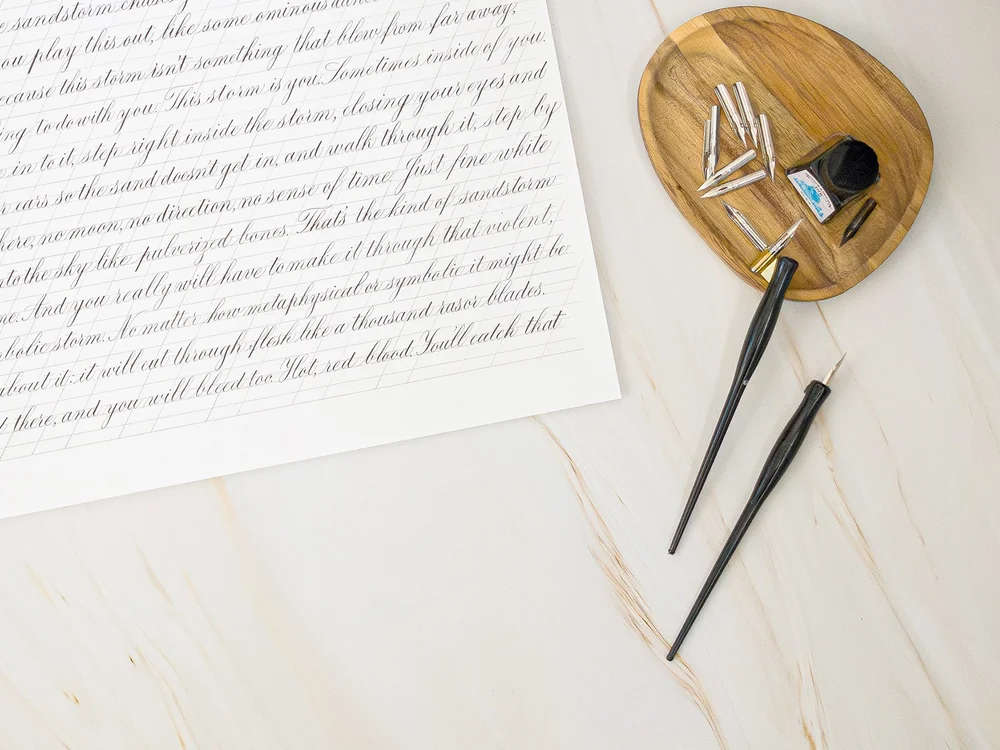 sandstorm chasing
you play this out, like some ominous dance
ecause this storm isn't something that blew from far away,
ing to do with you. This storm is you. Sometimes inside of you.
in to it, step right inside the storm, closing your eyes and
r ears so the sand doesn't get in, and walk through it, step by
here, no moon, no direction, no sense of time. Just fine white
nto the sky like pulverized bones. That's the kind of sandstorm
ne. And you really will have to make it through that violent,
mbolic storm. No matter how metaphysical or symbolic it might be
about it: it will cut through flesh like a thousand rasor blades.
d there, and you will bleed too. Hot, red blood. You'll catch that